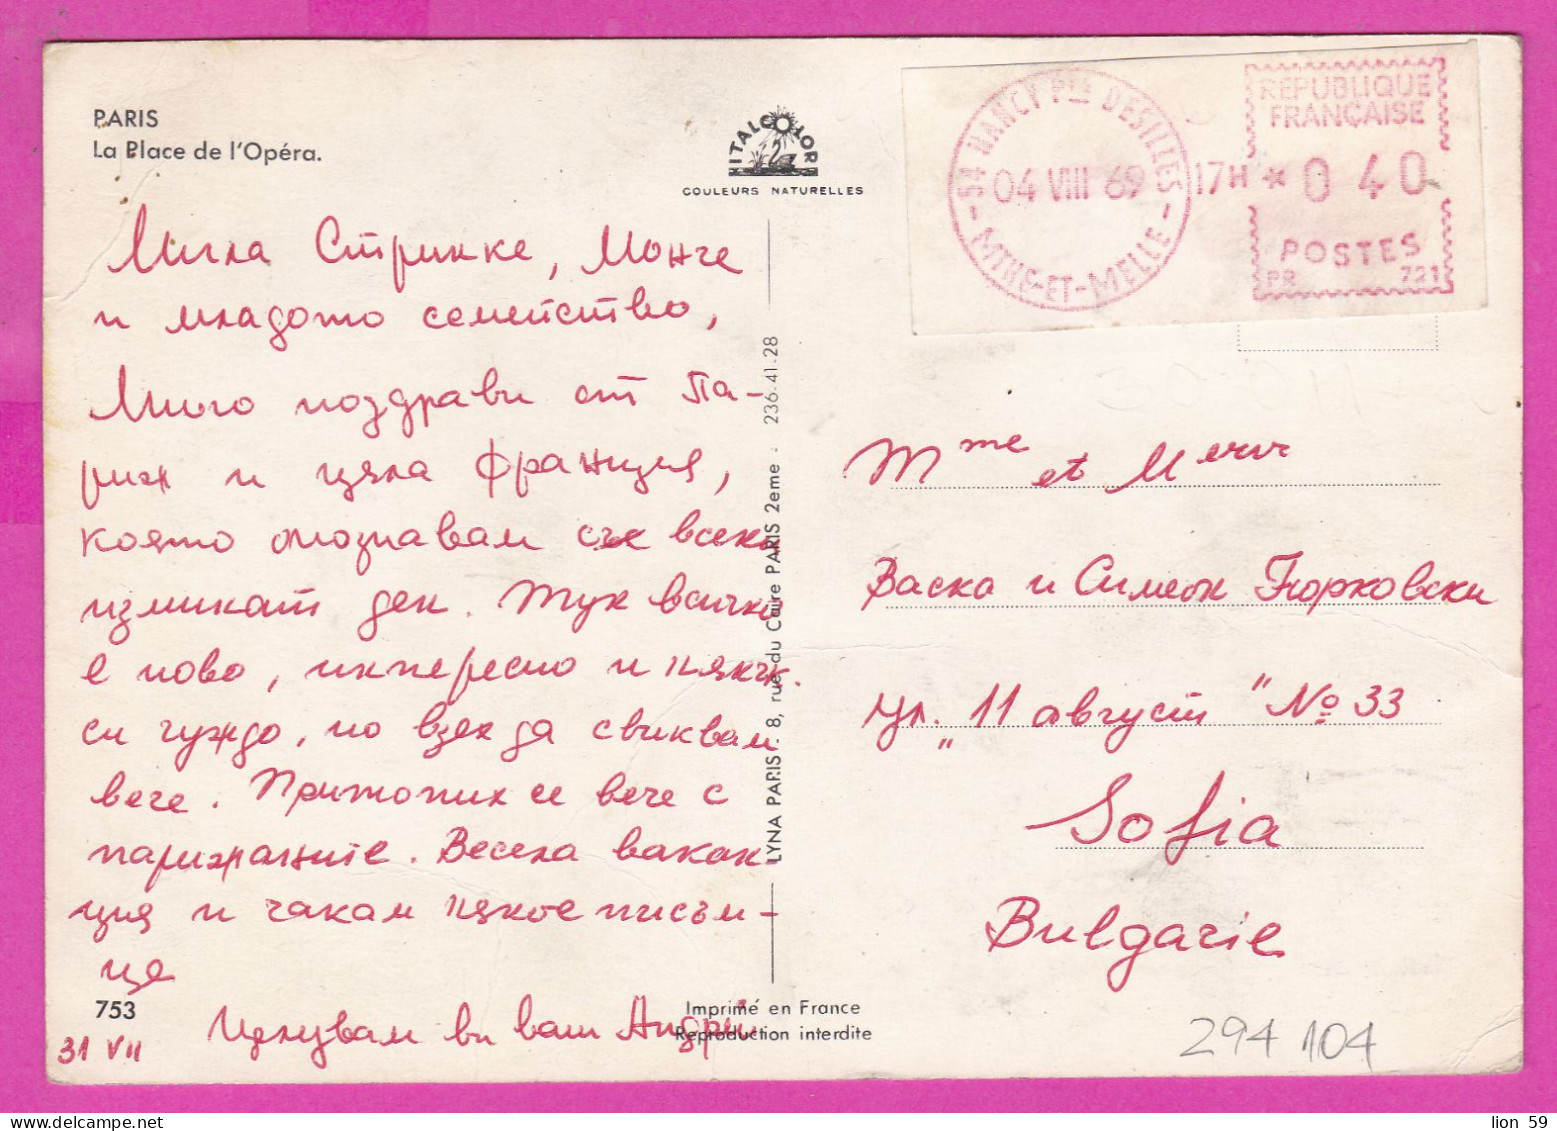 PARIS
La Place de l'Opéra.
ITALCOLOR
COULEURS NATURELLES
54 NANCY Pal DESILLES
MTHE-ET-MELLE
04 VIII 69
17H * 0 40
REPUBLIQUE
FRANÇAISE
POSTES
PR 721
Мила Стринке, Монче
и младото семейство,
Много поздрави от Па-
риж и цяла Франция,
която опознавам с всеки
изминат ден. Тук всичко
е ново, интересно и някак
си чуждо, но взех да свиквам
вече. Притопих се вече с
парижаните. Весела вакан
ция и чакам някое писъм-
це
753
31 VII
Целувам ви ваш Андрей
LYNA PARIS - 8, rue du Caire PARIS 2eme - 236.41.28
Imprimé en France
Reproduction interdite
Mme et M
Васка и Симеон Гюрковски
ул. „11 август" № 33
Sofia
Bulgarie
294 104
lion 59